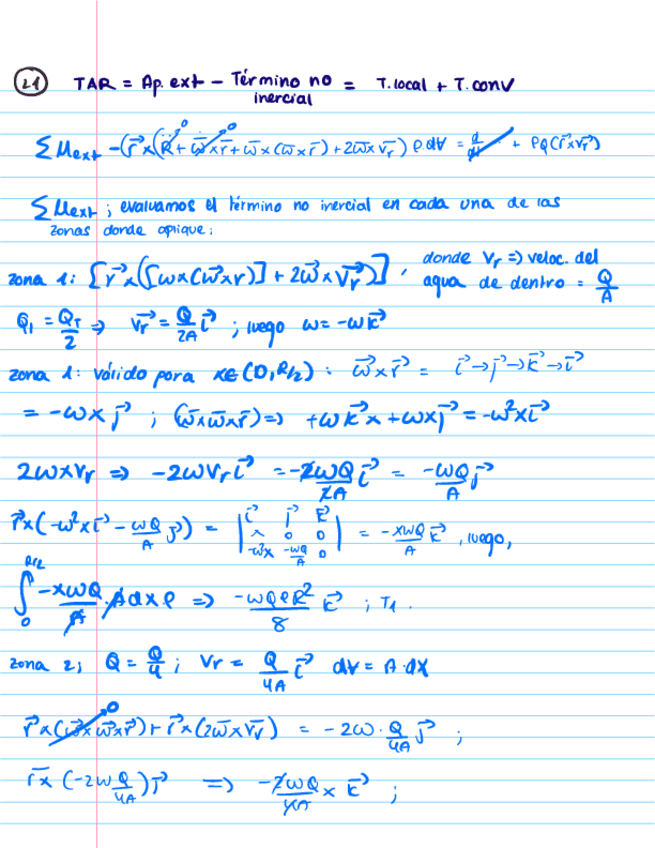 21 TAR = Ap. ext − Término no inercial = T.local + T.conv
ΣMext − (r⃗ x (R̈ + ω̇ x r̄ + ω̄ x (ω̄ x r̄) + 2ω̄ x v̄r) ρ.dV = d/dt + ρQ(r⃗ x v⃗r)
ΣMext ; evaluamos el término no inercial en cada una de las
zonas donde aplique;
zona 1: [r⃗ x ([ω x (ω⃗ x r)] + 2ω⃗ x v⃗r)] , donde Vr => veloc. del
agua de dentro = Q/A
Q1 = QT/2 => v⃗r = Q/2A i⃗ ; luego ω = −ωk⃗
zona 1: válido para x∈(0,R/2) : ω⃗ x r⃗ = i⃗→j⃗→k⃗→i⃗
= −ωx j⃗ ; (ω̄ x ω̄ x r̄) => +ωk⃗ x +ωx j⃗ = −ω²x i⃗
2ωxVr => −2ωVr i⃗ = −2ωQ/2A i⃗ = −ωQ/A j⃗
r⃗ x (−ω²x i⃗ − ωQ/A j⃗) = | i⃗ j⃗ k⃗ ; x 0 0 ; −ω²x −ωQ/A 0 | = −xωQ/A k⃗ , luego,
∫₀^(R/2) −xωQ/A · A dx ρ => −ωQρR²/8 k⃗ ; T1.
zona 2; Q = Q/4 ; Vr = Q/4A i⃗ dV = A·dx
r⃗ x (ω⃗ x ω⃗ x r⃗) + r⃗ x (2ω̄ x v̄r) = −2ω · Q/4A j⃗ ;
r̄ x (−2ω Q/4A) j⃗ => −2ωQ/4A x k⃗ ;